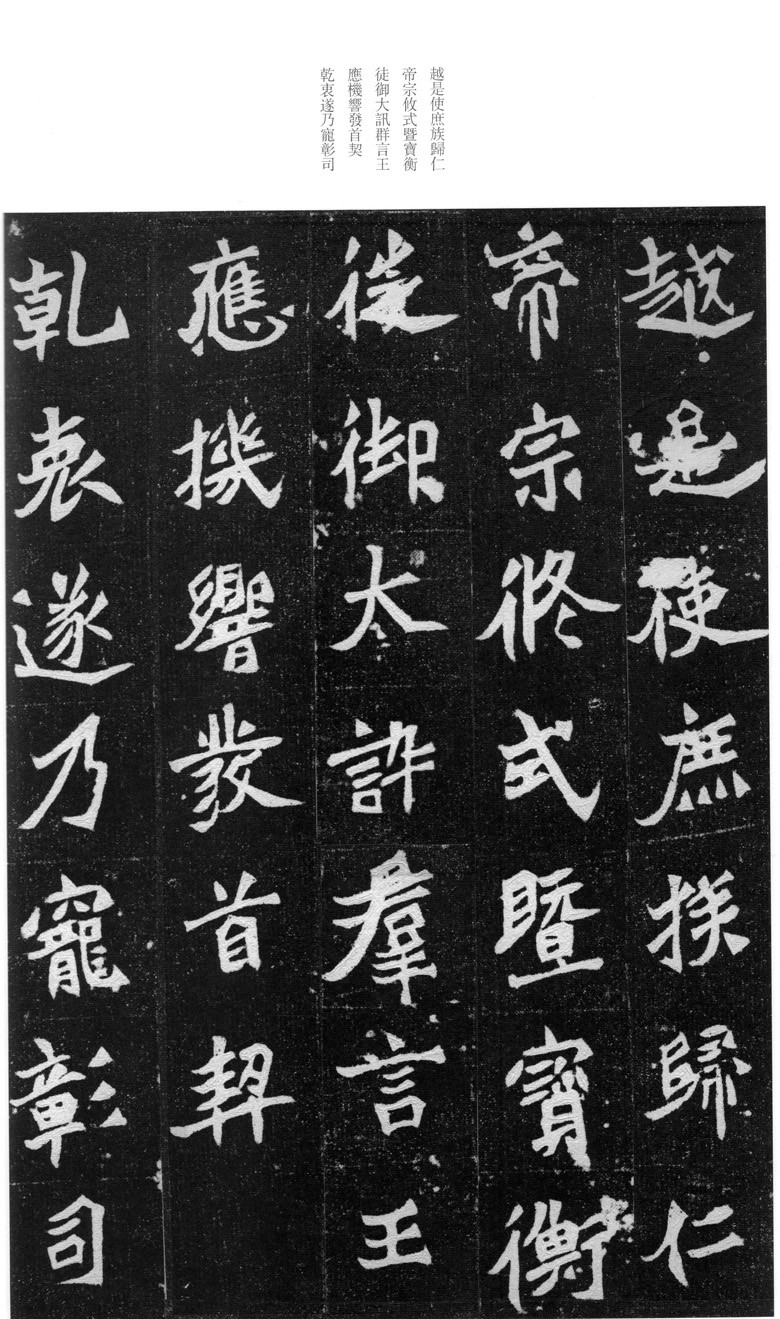 越是使庶族歸仁
帝宗攸式暨寶衡
徒御大訊群言王
應機響發首契
乾衷遂乃寵彰司
越是使庶族歸仁
帝宗攸式暨寶衡
徒御大訊羣言王
應機響發首契
乾衷遂乃寵彰司